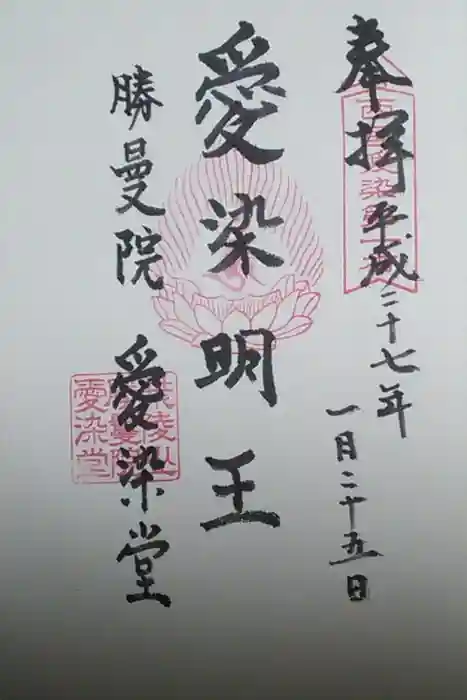 奉拝 平成二十七年
一月二十五日
愛染明王
勝鬘院 愛染堂